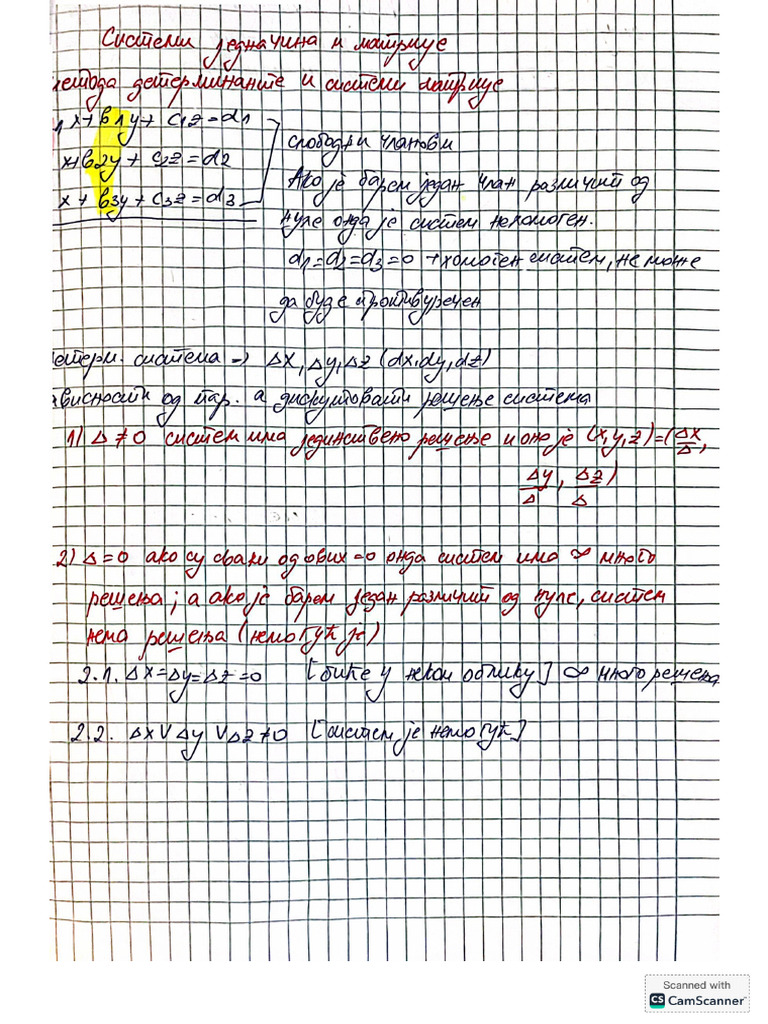 Системи једначина и матрице
метода детерминанте и системи матрице
1x+b1y+ c1z=d1
x+b2y+ c2z=d2
x+b3y+c3z=d3
слободни чланови
Ако је барем један члан различит од
нуле онда је систем нехомоген.
d1=d2=d3=0 →хомоген систем, не може
да буде противуречан
детерм. система → Δx, Δy, Δz (dx, dy, dz)
ависности од пар. a дискутовати решење система
1) Δ≠0 систем има јединствено решење и оно је (x,y,z)=(Δx/Δ,
Δy/Δ, Δz/Δ)
2) Δ=0 ако су сваки од ових =0 онда систем има ∞ много
решења; а ако је барем један различит од нуле, систем
нема решења (немогућ је)
2.1. Δx=Δy=Δz=0 [биће у неком облику] ∞ много решења
2.2. Δx∨Δy∨Δz≠0 [систем је немогућ]
Scanned with
CS CamScanner